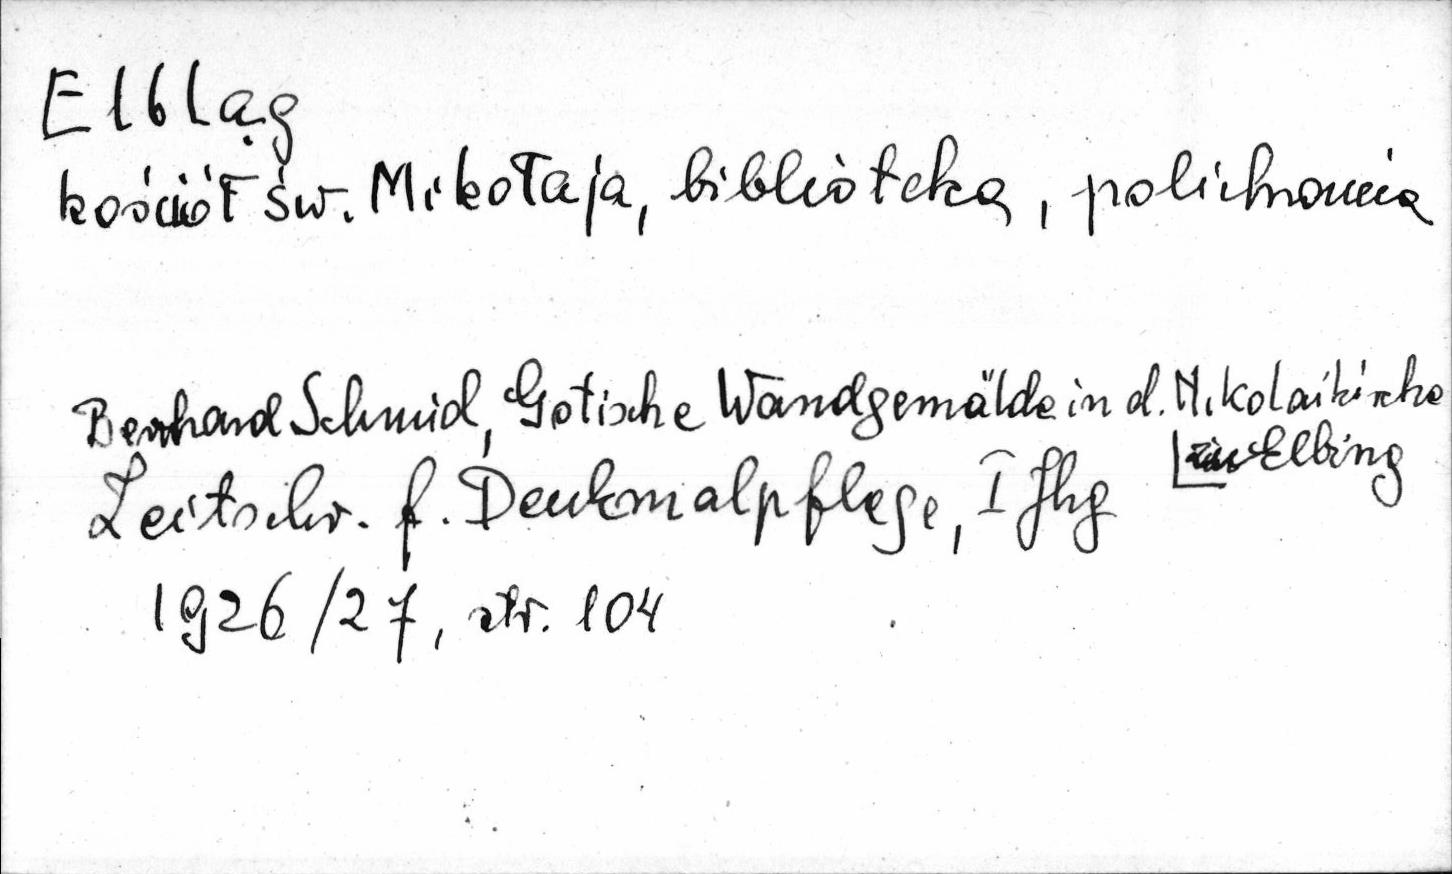 Elbląg
kościół św. Mikołaja, biblioteka, polichromia
Bernhard Schmid, Gotische Wandgemälde in d. Nikolaikirche
zu Elbing
Zeitschr. f. Denkmalpflege, I Jhg
1926/27, str. 104